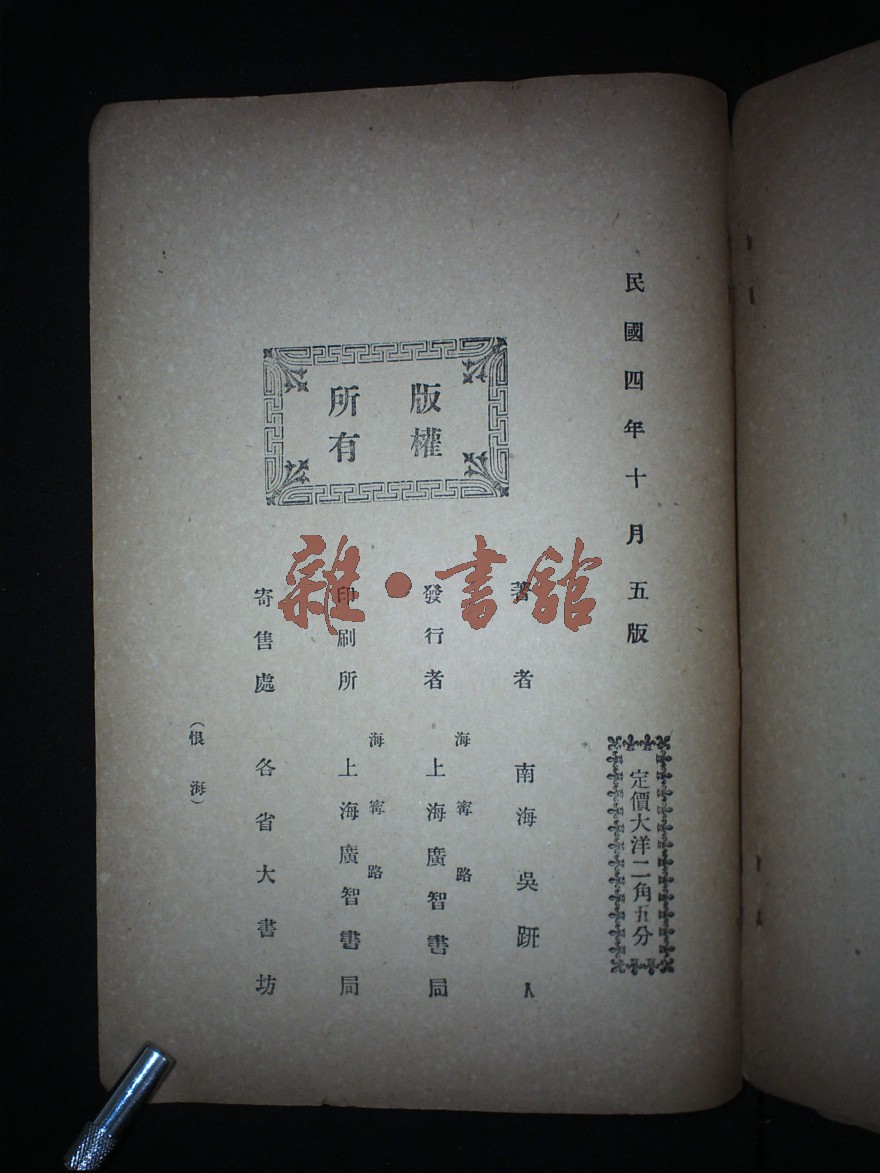 民國四年十月五版
定價大洋二角五分
版權
所有
著者 南海吳趼人
發行者 海甯路 上海廣智書局
印刷所 海甯路 上海廣智書局
寄售處 各省大書坊
（恨海）
雜·書館